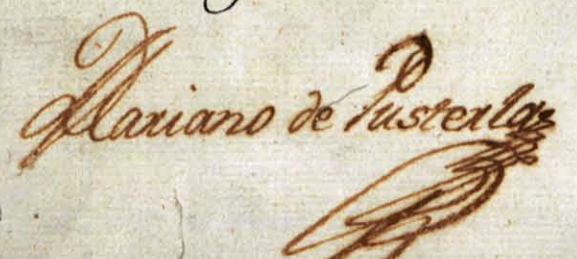 Mariano de Pusterla